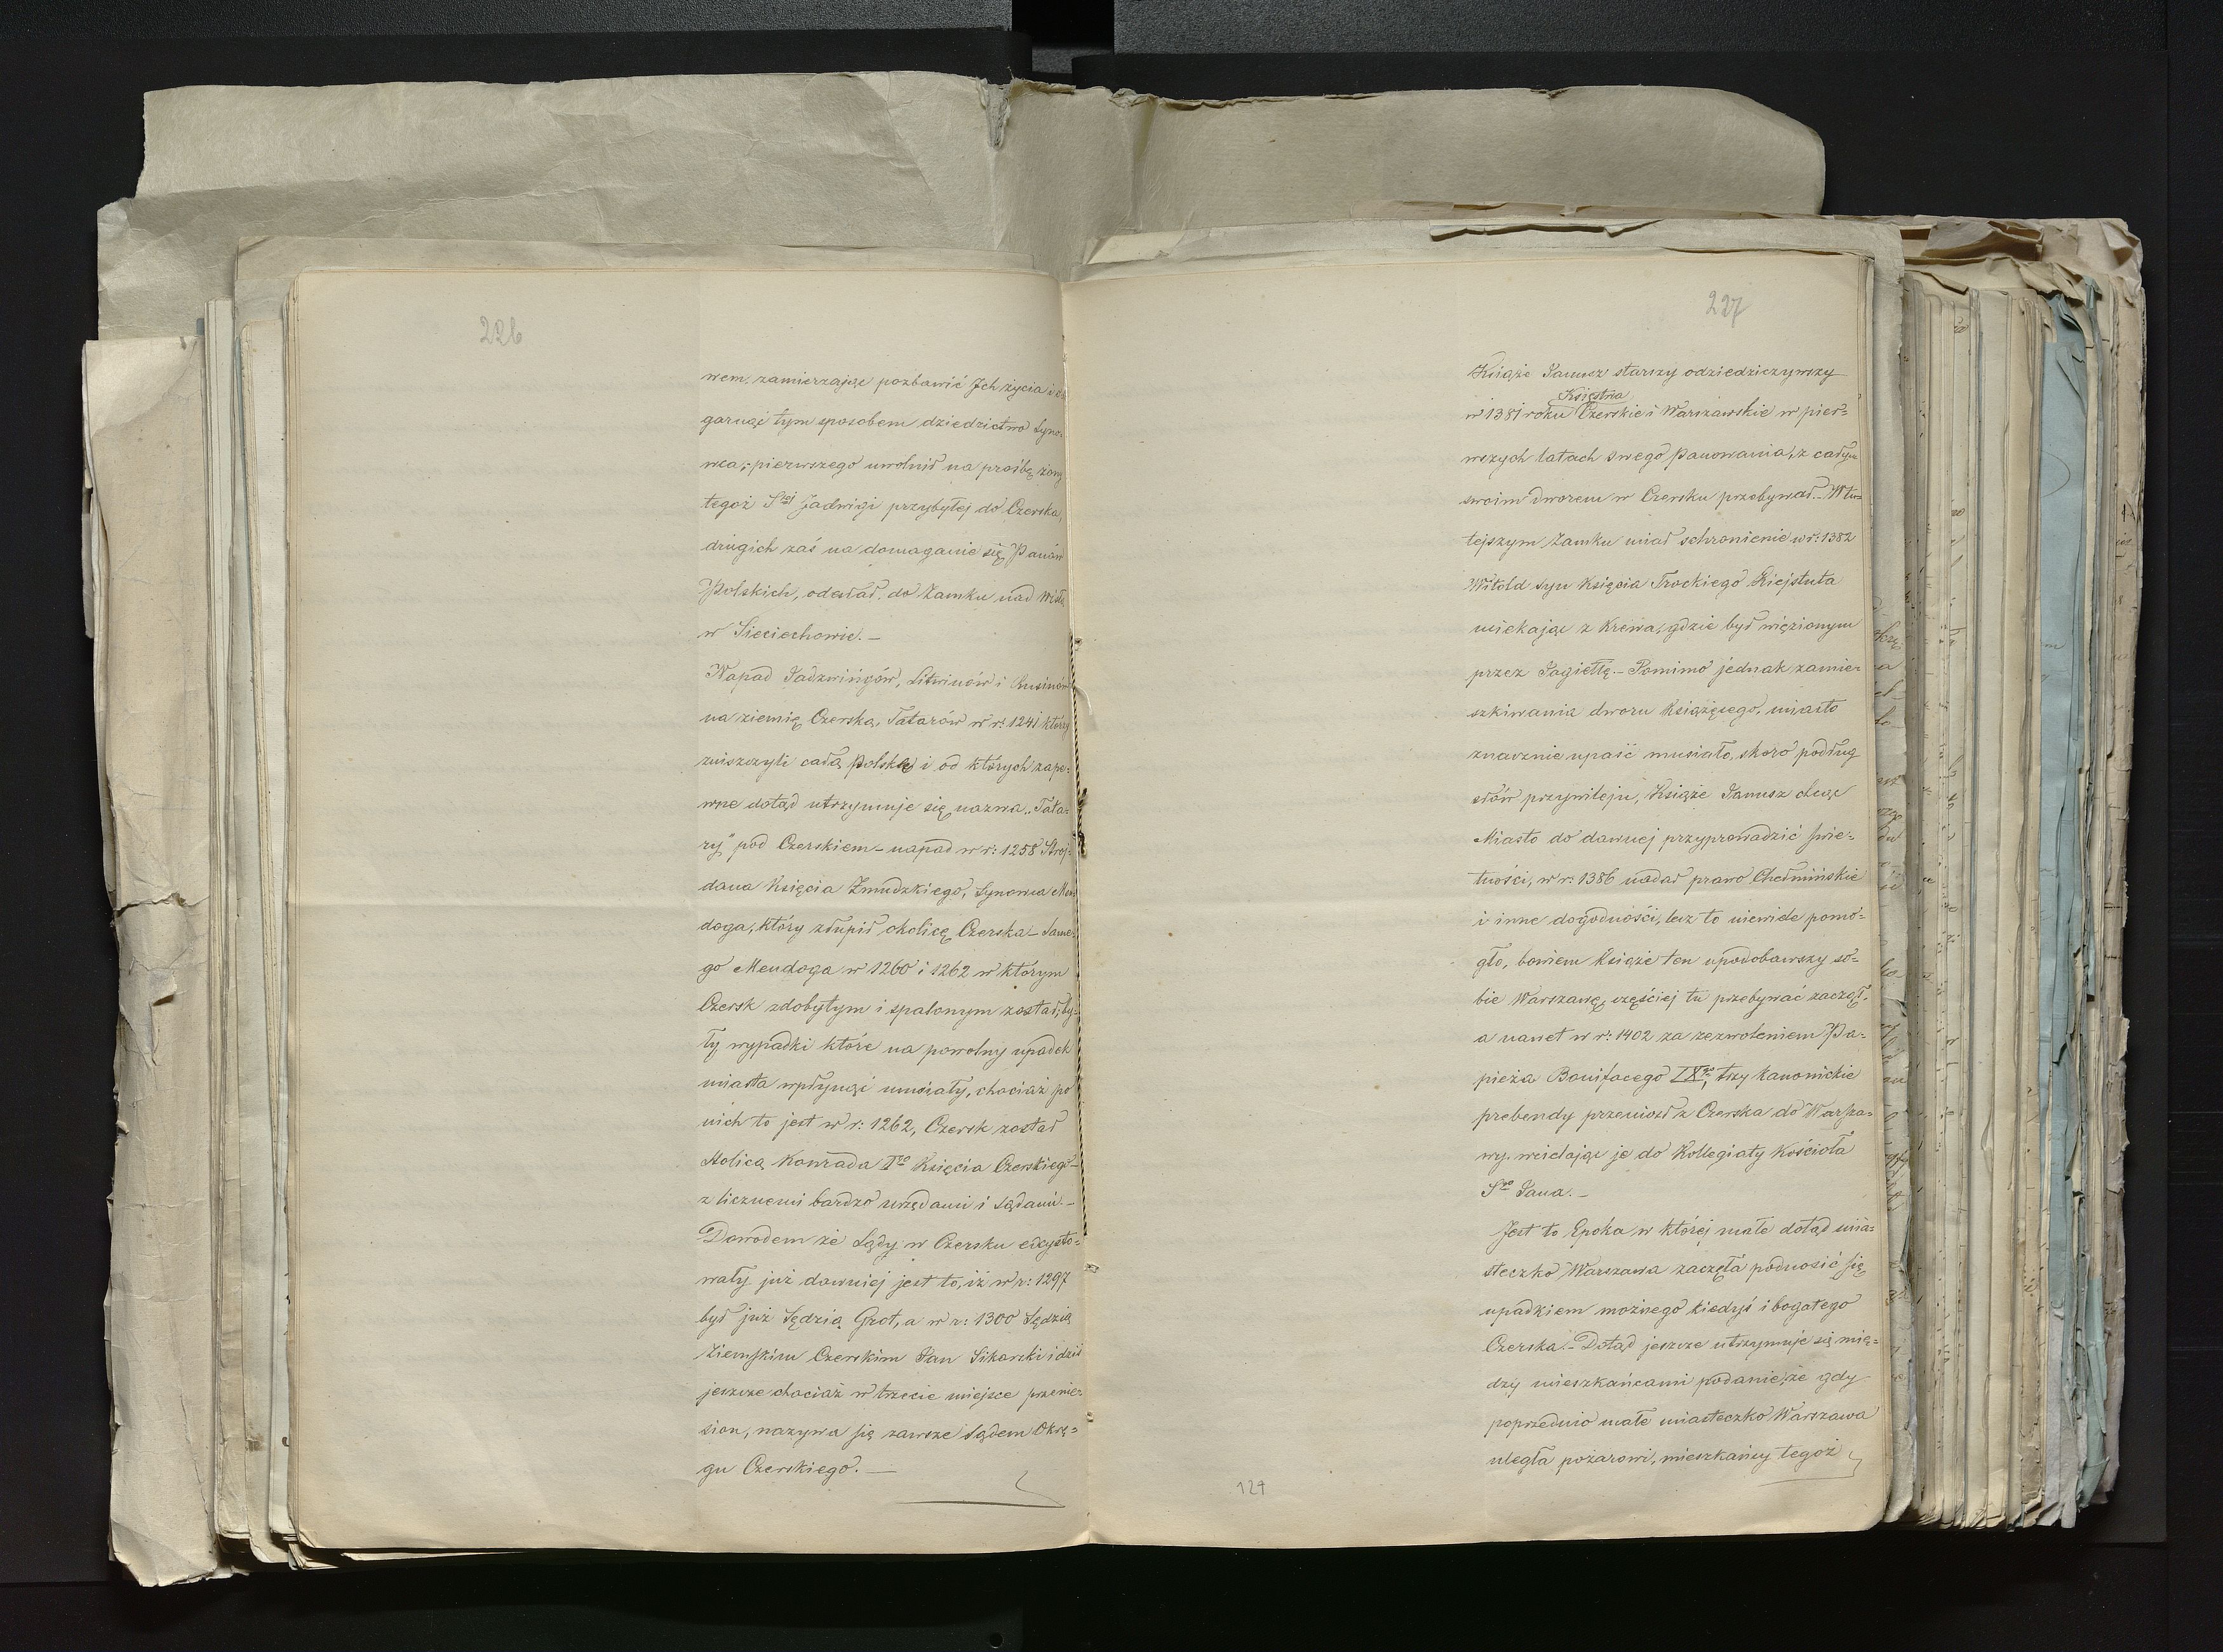 226
wem, zamierzając pozbawić Ich życia i o
garnąć tym sposobem dziedzictwo Syno-
wca, pierwszego uwolnił na prośbę żony
tegoż Stej Jadwigi przybyłej do Czerska,
drugich zaś na domaganie się Panów
Polskich, odesłał do Zamku nad Wisłą
w Sieciechowie. —
Napad Jadzwingów, Litwinów i Rusinów
na ziemię Czerską, Tatarów w r: 1241 którzy
zniszczyli całą Polskę i od których zape-
wne dotąd utrzymuje się nazwa „Tata-
ry" pod Czerskiem — napad w r: 1258 Stroj-
dana Księcia Żmudzkiego, Synowca Men
doga, który złupił okolicę Czerska — Same-
go Mendoga w 1260 i 1262 w którym
Czersk zdobytym i spalonym został, by-
ły wypadki które na powolny upadek
miasta wpłynąć musiały, chociaż po
nich to jest w r: 1262, Czersk został
Stolicą Konrada Igo Księcia Czerskiego —
z licznemi bardzo urzędami i Sądami. —
Dowodem że Sądy w Czersku exysto-
wały już dawniej jest to, iż w r: 1297
był już Sędzią Grot, a w r: 1300 Sędzią
Ziemskim Czerskim Jan Sikorski i dziś
jeszcze chociaż w trzecie miejsce przenie-
sion, nazywa się zawsze Sądem Okrę-
gu Czerskiego. —
227
Książe Janusz starszy odziedziczywszy
Księstwa
w 1381 roku Czerskie i Warszawskie w pier-
wszych latach swego panowania, z całym
swoim dworem w Czersku przebywał. — W tu-
tejszym Zamku miał schronienie w r: 1382
Witold syn Księcia Trockiego Kiejstuta
uciekając z Krewa, gdzie był więzionym
przez Jagiełłę. — Pomimo jednak zamie-
szkiwania dworu Książęcego, miasto
znacznie upaść musiało, skoro podług
słów przywileju, Książe Janusz chcąc
Miasto do dawnej przyprowadzić świe-
tności, w r: 1386 nadał prawo Chełmińskie
i inne dogodności, lecz to niewiele pomo-
gło, bowiem Książe ten upodobawszy so-
bie Warszawę, częściej tu przebywać zaczął,
a nawet w r: 1402 za zezwoleniem Pa-
pieża Bonifacego IXgo, trzy Kanonickie
prebendy przeniosł z Czerska do Warsza-
wy, wcielając je do Kollegiaty Kościoła
Sgo Jana. —
Jest to Epoka w której małe dotąd mia-
steczko Warszawa zaczęła podnosić się
upadkiem możnego kiedyś i bogatego
Czerska. — Dotąd jeszcze utrzymuje się mię-
dzy mieszkańcami podanie, że gdy
poprzednio małe miasteczko Warszawa
uległa pożarowi, mieszkańcy tegoż
127